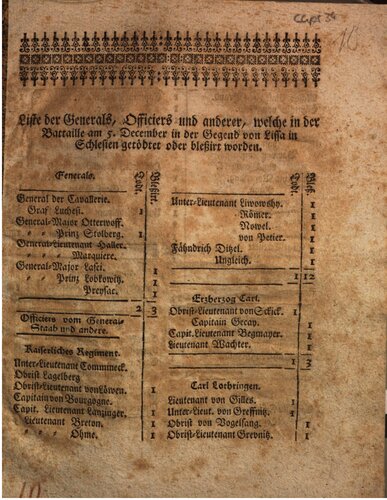 Liste der Generals, Officiers und anderer, welche in der
Battaille am 5. December in der Gegend von Lissa in
Schlesien getödtet oder bleßirt worden.
Generals. Todt. Bleßirt.
General der Cavallerie.
Graf Luchesi. 1
General-Major Otterwolf.
" " Prinz Stolberg. 1
General-Lieutenant Haller. 1
" " Marquiere. 1
General-Major Lasci. 1
" " Prinz Lobkowitz. 1
Preysac. 1
2 3
Officiers vom General-
Staab und andere.
Kaiserliches Regiment.
Unter-Lieutenant
Obrist Lagelberg
Obrist-Lieutenant von Löwen. 1
Capitain von Bourgogne. 1
Capit. Lieutenant Lanzinger. 1
Lieutenant Breton. 1
" " Ohme. 1
Todt. Bleß.
Unter-Lieutenant Liwowsky. 1
Römer. 1
Nowel. 1
von Petier. 1
Fähndrich Ditzel. 1
Ungleich. 1
1 12
Erzherzog Carl.
Obrist-Lieutenant von Sckick. 1
Capitain Grcay. 1
Capit. Lieutenant Begmayer. 1
Lieutenant Wachter. 1
1 3
Carl Lothringen.
Lieutenant von Gilles. 1
Unter-Lieut. von Greffnitz. 1
Obrist von Vogelsang. 1
Obrist-Lieutenant Grevnitz. 1